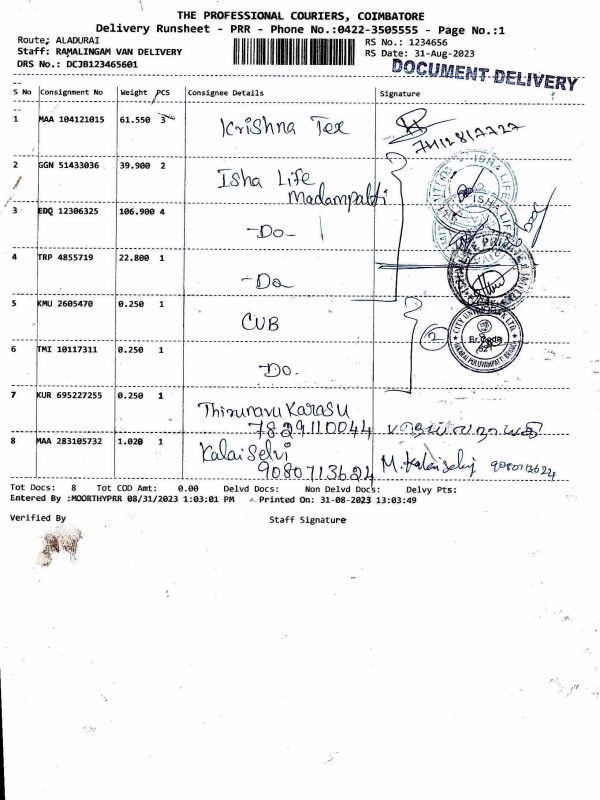 THE PROFESSIONAL COURIERS, COIMBATORE
Delivery Runsheet - PRR - Phone No.:0422-3505555 - Page No.:1
Route; ALADURAI
RS No.: 1234656
Staff: RAMALINGAM VAN DELIVERY
RS Date: 31-Aug-2023
DRS No.: DCJB123465601
DOCUMENT DELIVERY
S No Consignment No Weight PCS Consignee Details Signature
1 MAA 104121015 61.550 3 Krishna Tex
2 GGN 51433036 39.900 2 Isha Life
Madampatti
ISHA LIFE
3 EDQ 12306325 106.900 4 -Do-
ISHA LIFE
4 TRP 4855719 22.800 1 -Do
5 KMU 2605470 0.250 1 CUB
2
CITY UNION BANK LTD.
6 TMI 10117311 0.250 1 Do.
7 KUR 695227255 0.250 1 Thirunavu Karasu
7829110044
8 MAA 283105732 1.020 1 Kalai Selvi
9080713624 M. Kalai Selvi 9080713624
Tot Docs: 8 Tot COD Amt: 0.00 Delvd Docs: Non Delvd Docs: Delvy Pts:
Entered By :MOORTHYPRR 08/31/2023 1:03:01 PM Printed On: 31-08-2023 13:03:49
Verified By Staff Signature